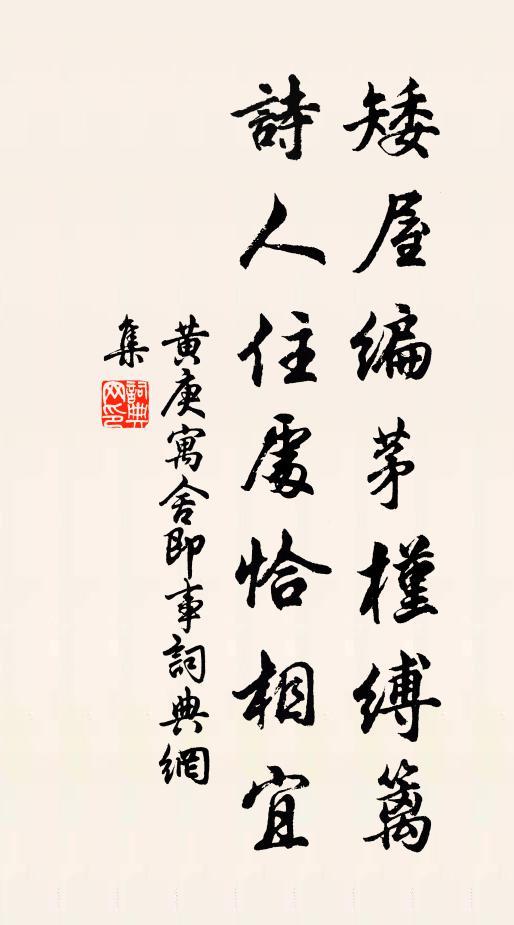 矮屋編茅槿縛籬
詩人住處恰相宜
黃庚寓舍即事詞典網
集
詞典
网印